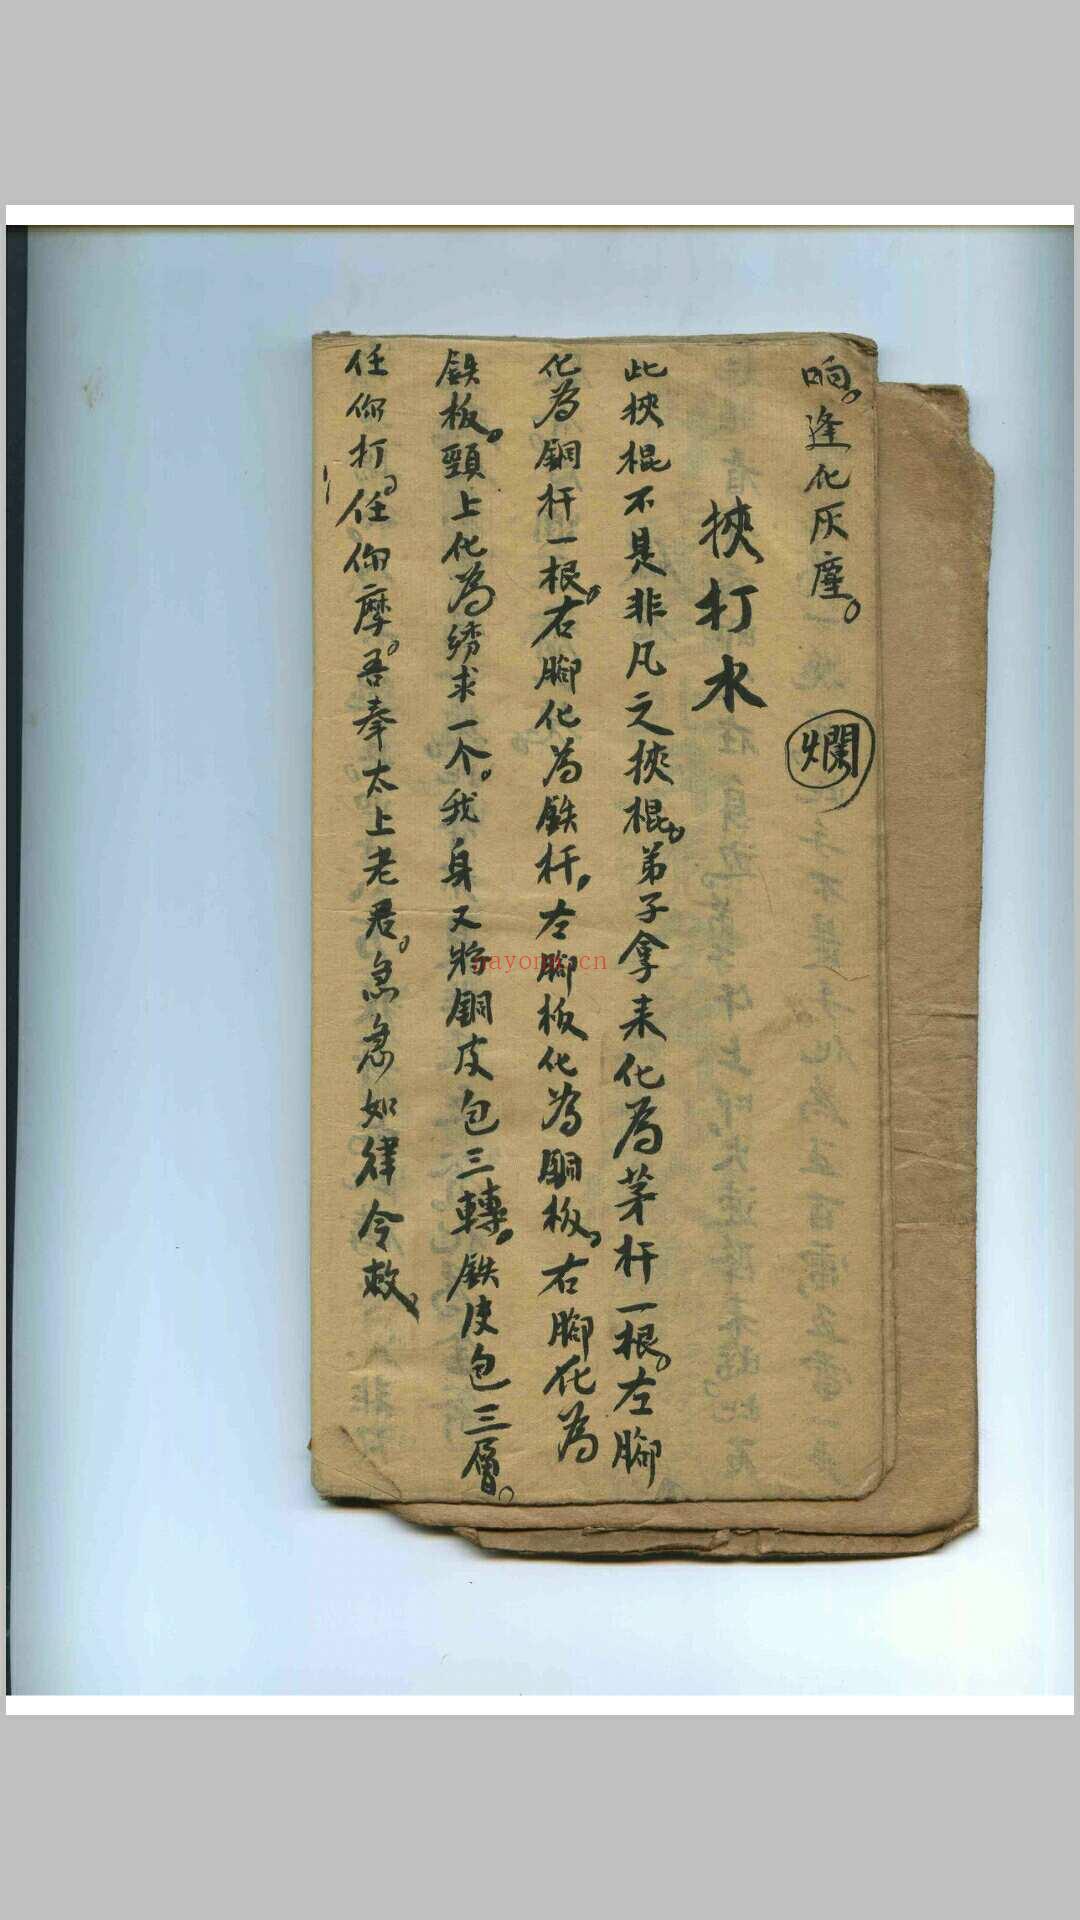 响。逢化灰塵。
爛
挾打水
此挾棍不是非凡之挾棍。弟子拿来化為茅杆一根。左腳
化為銅杆一根。右腳化為鉄杆。左腳板化為銅板。右腳化為
鉄板。頸上化為绣求一个。我身又將銅皮包三轉。鉄皮包三層。
任你打。任你摩。吾奉太上老君。急急如律令敕